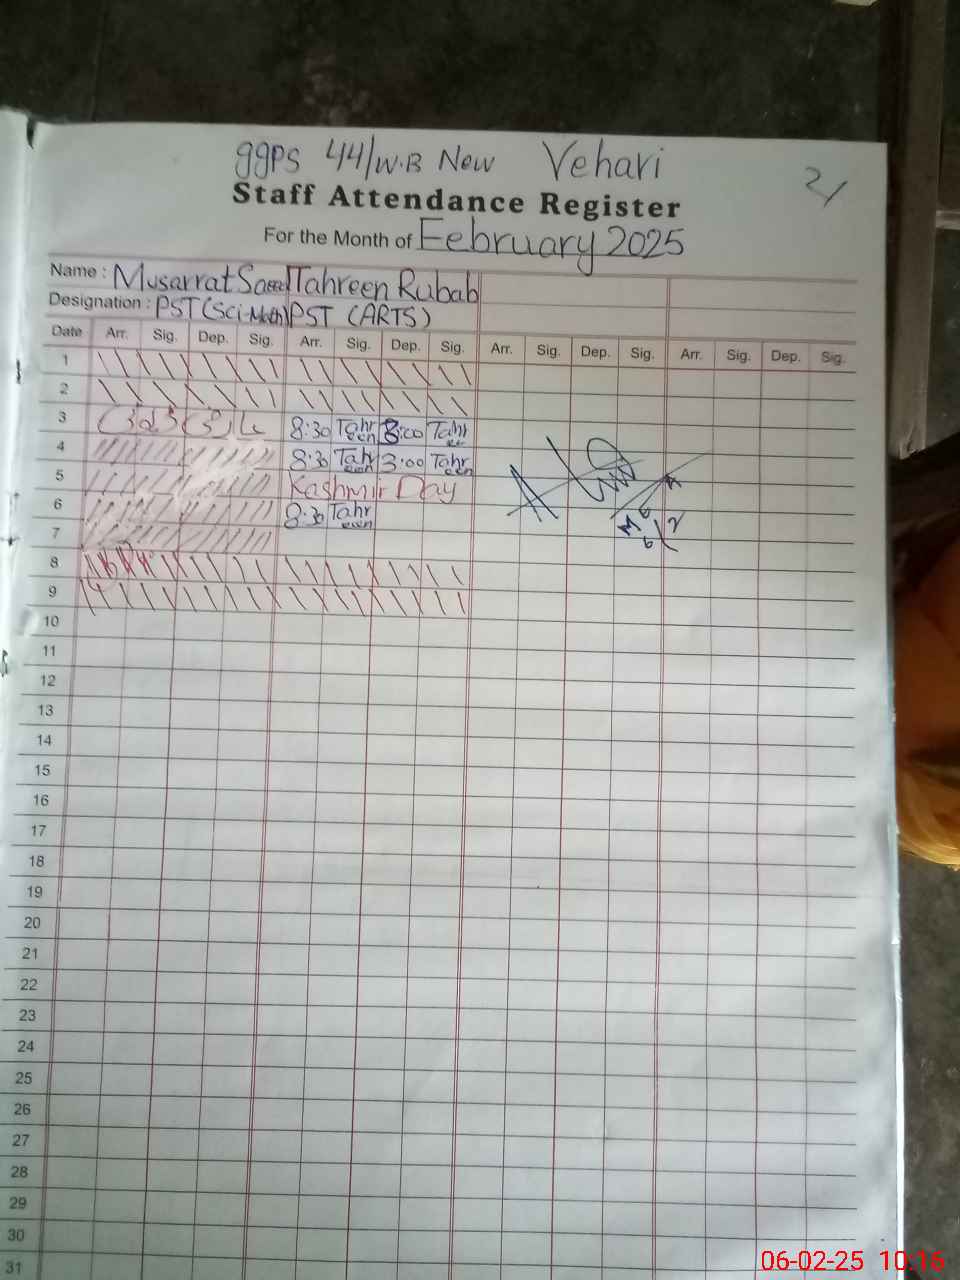 ggps 44/W.B New Vehari
2/
Staff Attendance Register
For the Month of February 2025
Name : Musarrat Saeed Tahreen Rubab
Designation : PST (Sci-Math) PST (ARTS)
Date Arr. Sig. Dep. Sig. Arr. Sig. Dep. Sig. Arr. Sig. Dep. Sig. Arr. Sig. Dep. Sig.
1
2
3 8:30 Tahreen 3:00 Tahreen
4 8:30 Tahreen 3:00 Tahreen
5 Kashmir Day
6 8:30 Tahreen
7
8
9
10
11
12
13
14
15
16
17
18
19
20
21
22
23
24
25
26
27
28
29
30
31
06-02-25 10:16